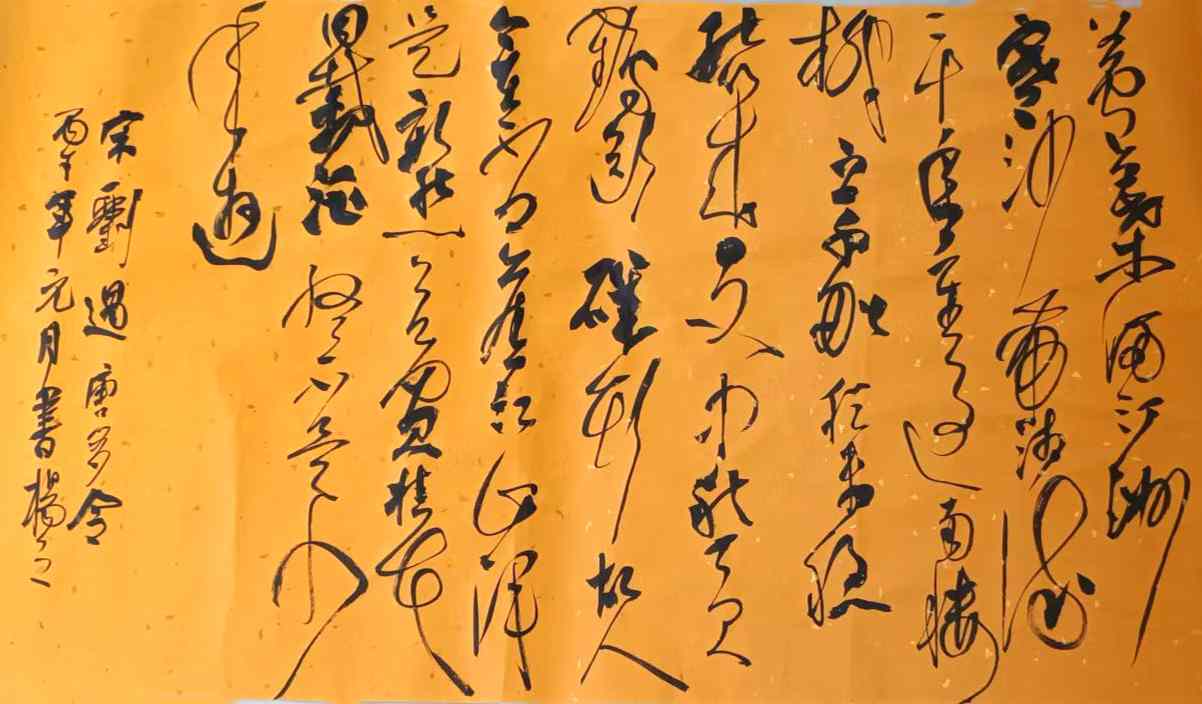 蘆葉滿汀洲
寒沙帶淺流
二十年重過南樓
柳下系船猶未穩
能幾日又中秋黃
鶴斷磯頭故人
今在否舊江山渾
是新愁欲買桂花
同載酒終不似少
年遊
宋劉過唐多令
丙午年元月書楊